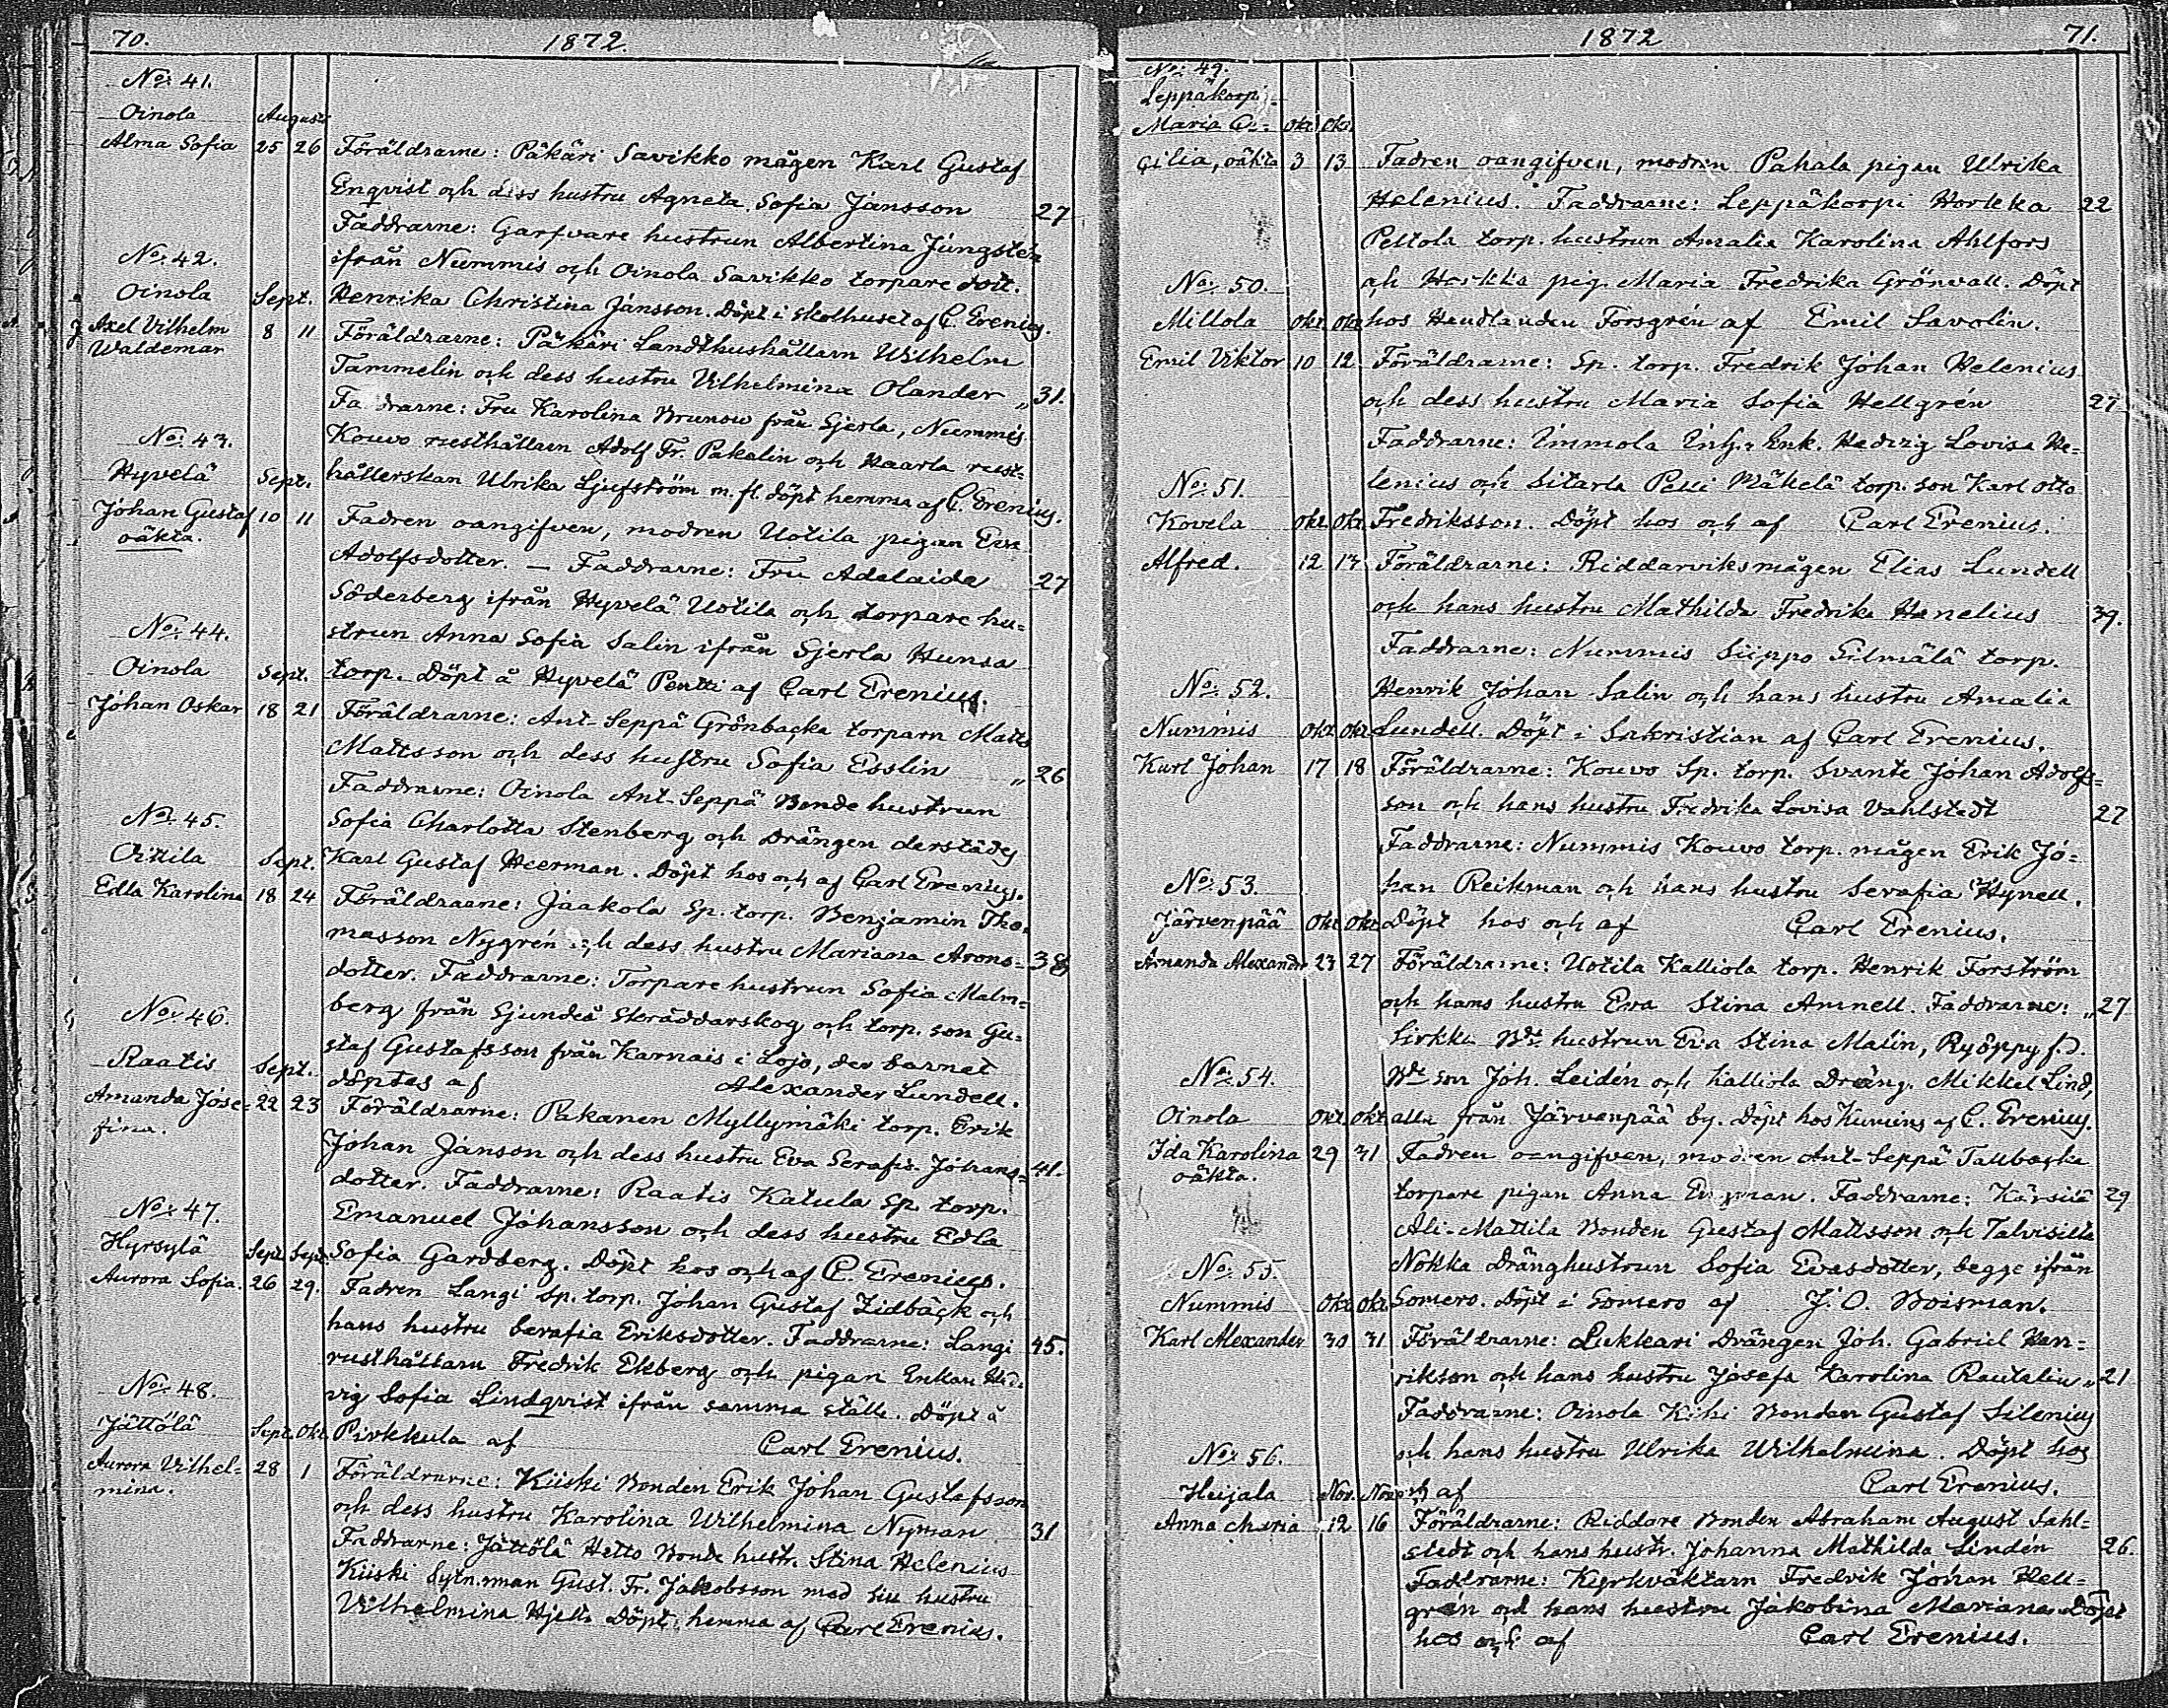 70. 1872.
No: 41.
Oinola Augusti
Alma Sofia 25 26 Föräldrarne: Päkäri Savikko mågen Karl Gustaf
Enqvist och dess hustru Agneta Sofia Jansson 27
Faddrarne: Garfvare hustrun Albertina Jungstén
ifrån Nummis och Oinola Savikko torpare dott.
Henrika Christina Jansson. Döpt i skolhuset af C. Erenius.
No: 42.
Oinola Sept.
Axel Vilhelm Waldemar 8 11 Föräldrarne: Päkäri Landthushållarn Wilhelm
Tammelin och dess hustru Vilhelmina Olander „ 31.
Faddrarne: Fru Karolina Brunow från Gjerla, Nummis
Kouvo rusthållarn Adolf Fr. Pakalin och Haarla rust=
hållerskan Ulrika Ljufström m. fl. döpt hemma af C. Erenius.
No: 43.
Hyvelä Sept.
Johan Gustaf oäkta. 10 11 Fadren oangifven, modren Uotila pigan Eva
Adolfsdotter. — Faddrarne: Fru Adelaide 27
Söderberg ifrån Hyvelä Uotila och torpare hu=
strun Anna Sofia Salin ifrån Gjerla Hunsa
torp. Döpt å Hyvelä Pentti af Carl Erenius.
No: 44.
Oinola Sept.
Johan Oskar 18 21 Föräldrarne: Ant-Seppä Grönbacka torparn Matts
Mattsson och dess hustru Sofia Esslin „ 26
Faddrarne: Oinola Ant-Seppä Bonde hustrun
Sofia Charlotta Stenberg och Drängen derstädes
Karl Gustaf Heerman. Döpt hos och af Carl Erenius.
No: 45.
Oittila Sept.
Edla Karolina 18 24 Föräldrarne: Jaakola Sp. torp. Benjamin Tho=
masson Nygrén och dess hustru Mariana Arons= 38
dotter. Faddrarne: Torpare hustrun Sofia Malm=
berg från Sjundeå Skräddarskog och torp. son Gu=
staf Gustafsson från Karnais i Lojo, der barnet
döptes af Alexander Lundell.
No: 46.
Raatis Sept.
Amanda Jose= fina. 22 23 Föräldrarne: Pakanen Myllymäki torp. Erik
Johan Janson och dess hustru Eva Serafia Johans= 41.
dotter. Faddrarne: Raatis Katula Sp. torp.
Emanuel Johansson och dess hustru Edla
Sofia Gardberg. Döpt hos och af C. Erenius.
No: 47.
Hyrsylä Sept. Sept.
Aurora Sofia. 26 29. Fadren Langi Sp. torp. Johan Gustaf Lidbäck och
hans hustru Serafia Eriksdotter. Faddrarne: Langi 45.
rusthållarn Fredrik Ekberg och pigan Enkan Hed=
vig Sofia Lindqvist ifrån samma ställe. Döpt å
Pirkkula af Carl Erenius.
No: 48.
Jättölä Sept. Okt.
Aurora Vilhel= mina. 28 1 Föräldrarne: Kiiski Bonden Erik Johan Gustafsson
och dess hustru Karolina Wilhelmina Nyman 31
Faddrarne: Jättölä Hetto Bonde hustr. Stina Helenius
Kiiski Sytn.man Gust. Fr. Jakobsson med sin hustru
Vilhelmina Hjelt. Döpt hemma af Carl Erenius.
1872 71.
No: 49.
Leppäkorpi
Maria Ce= Okt. Okt.
cilia, oäkta 3 13 Fadren oangifven, modren Pahala pigan Ulrika
Helenius. Faddrarne: Leppäkorpi Horkka 22
Peltola torp. hustrun Amalia Karolina Ahlfors
och Horkka pig. Maria Fredrika Grönvall. Döpt
hos Handlanden Forsgrén af Emil Savolin.
No: 50.
Millola Okt. Okt.
Emil Viktor 10 12 Föräldrarne: Sp. torp. Fredrik Johan Helenius
och dess hustru Maria Sofia Hellgrén 27
Faddrarne: Immola Inh. Enk. Hedvig Lovisa He=
lenius och Sitarla Peui Mäkelä torp. son Karl Otto
Fredriksson. Döpt hos och af Carl Erenius.
No: 51.
Kovela Okt. Okt.
Alfred. 12 13 Föräldrarne: Riddarviksmågen Elias Lundell
och hans hustru Mathilda Fredrika Hanelius 39.
Faddrarne: Nummis Siippo Silmälä torp.
Henrik Johan Salin och hans hustru Amalia
Lundell. Döpt i Sakristian af Carl Erenius.
No: 52.
Nummis Okt. Okt.
Karl Johan 17 18 Föräldrarne: Kouvo Sp. torp. Svante Johan Adolfs=
son och hans hustru Fredrika Lovisa Vahlstedt 27
Faddrarne: Nummis Kouvo torp. mågen Erik Jo=
han Reikman och hans hustru Serafia Hynell.
Döpt hos och af Carl Erenius.
No: 53.
Järvenpää Okt. Okt.
Amanda Alexandra 23 27 Föräldrarne: Uotila Kalliola torp. Henrik Forström
och hans hustru Eva Stina Amnell. Faddrarne: „ 27
Sirkka Bde hustrun Eva Stina Malin, Ryöppy f.d.
Bde son Joh. Leidén och Kalliola Dräng. Mikkel Lind,
alla från Järvenpää by. Döpt hos Kumins af C. Erenius.
No: 54.
Oinola Okt. Okt.
Ida Karolina oäkta. 29 31 Fadren oangifven, modren Ant-Seppä Tallbacka
torpare pigan Anna Engman. Faddrarne: Kärsilä 29
Ali-Mattila Bonden Gustaf Mattsson och Talvisilta
Nokka Dränghustrun Sofia Evasdotter, begge ifrån
Somero. Döpt i Somero af J. O. Boisman.
No: 55.
Nummis Okt. Okt.
Karl Alexander 30 31 Föräldrarne: Lukkari Drängen Joh. Gabriel Hen=
rikson och hans hustru Josefa Karolina Rautalin „ 21
Faddrarne: Oinola Kihi Bonden Gustaf Silenius
och hans hustru Ulrika Wilhelmina. Döpt hos
och af Carl Erenius.
No: 56.
Heijala Nov. Nov.
Anna Maria 12 16 Föräldrarne: Riddare Bonden Abraham August Sahl=
stedt och hans hustr. Johanna Mathilda Lindén 26.
Faddrarne: Kyrkväktarn Fredrik Johan Hell=
grén och hans hustru Jakobina Mariana. Döpt
hos och af Carl Erenius.